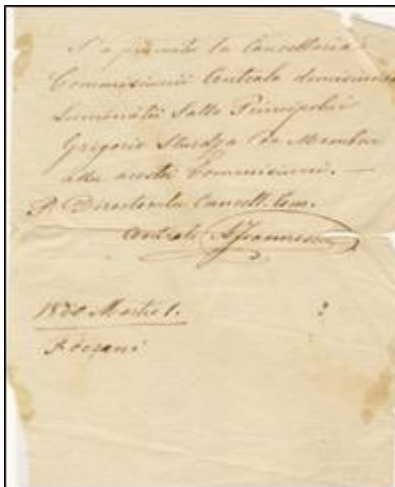 S'a primitu la Cancellaria
Commissiunii Centrale demisiunea
Luminătii Salle Principelui
Gregorie Sturdza ca Membru
alu acestei Commissiuni. —
P. Directorulu Cancell. Com.
Centrale
1860 Martie 1.
Focșani